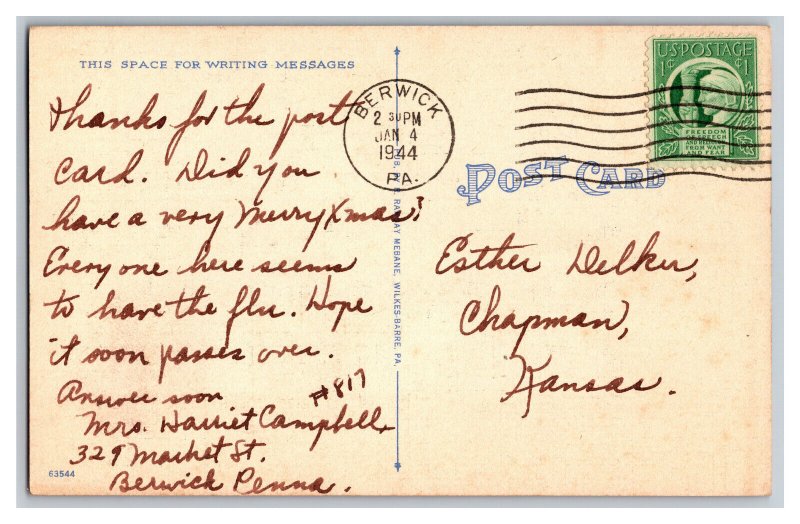 THIS SPACE FOR WRITING MESSAGES
thanks for the post
card. Did you
have a very Merry Xmas?
Every one here seems
to have the flu. Hope
it soon passes over.
Answer soon
#817
Mrs. Harriet Campbell
329 Market St.
Berwick Penna.
63544
MEBANE, WILKES-BARRE, PA.
BERWICK
2 30 PM
JAN 4
1944
PA.
U.S POSTAGE
1¢ ¢1
FREEDOM
OF SPEECH
AND RELIGION
FROM WANT
AND FEAR
POST CARD
Esther Delker,
Chapman,
Kansas.